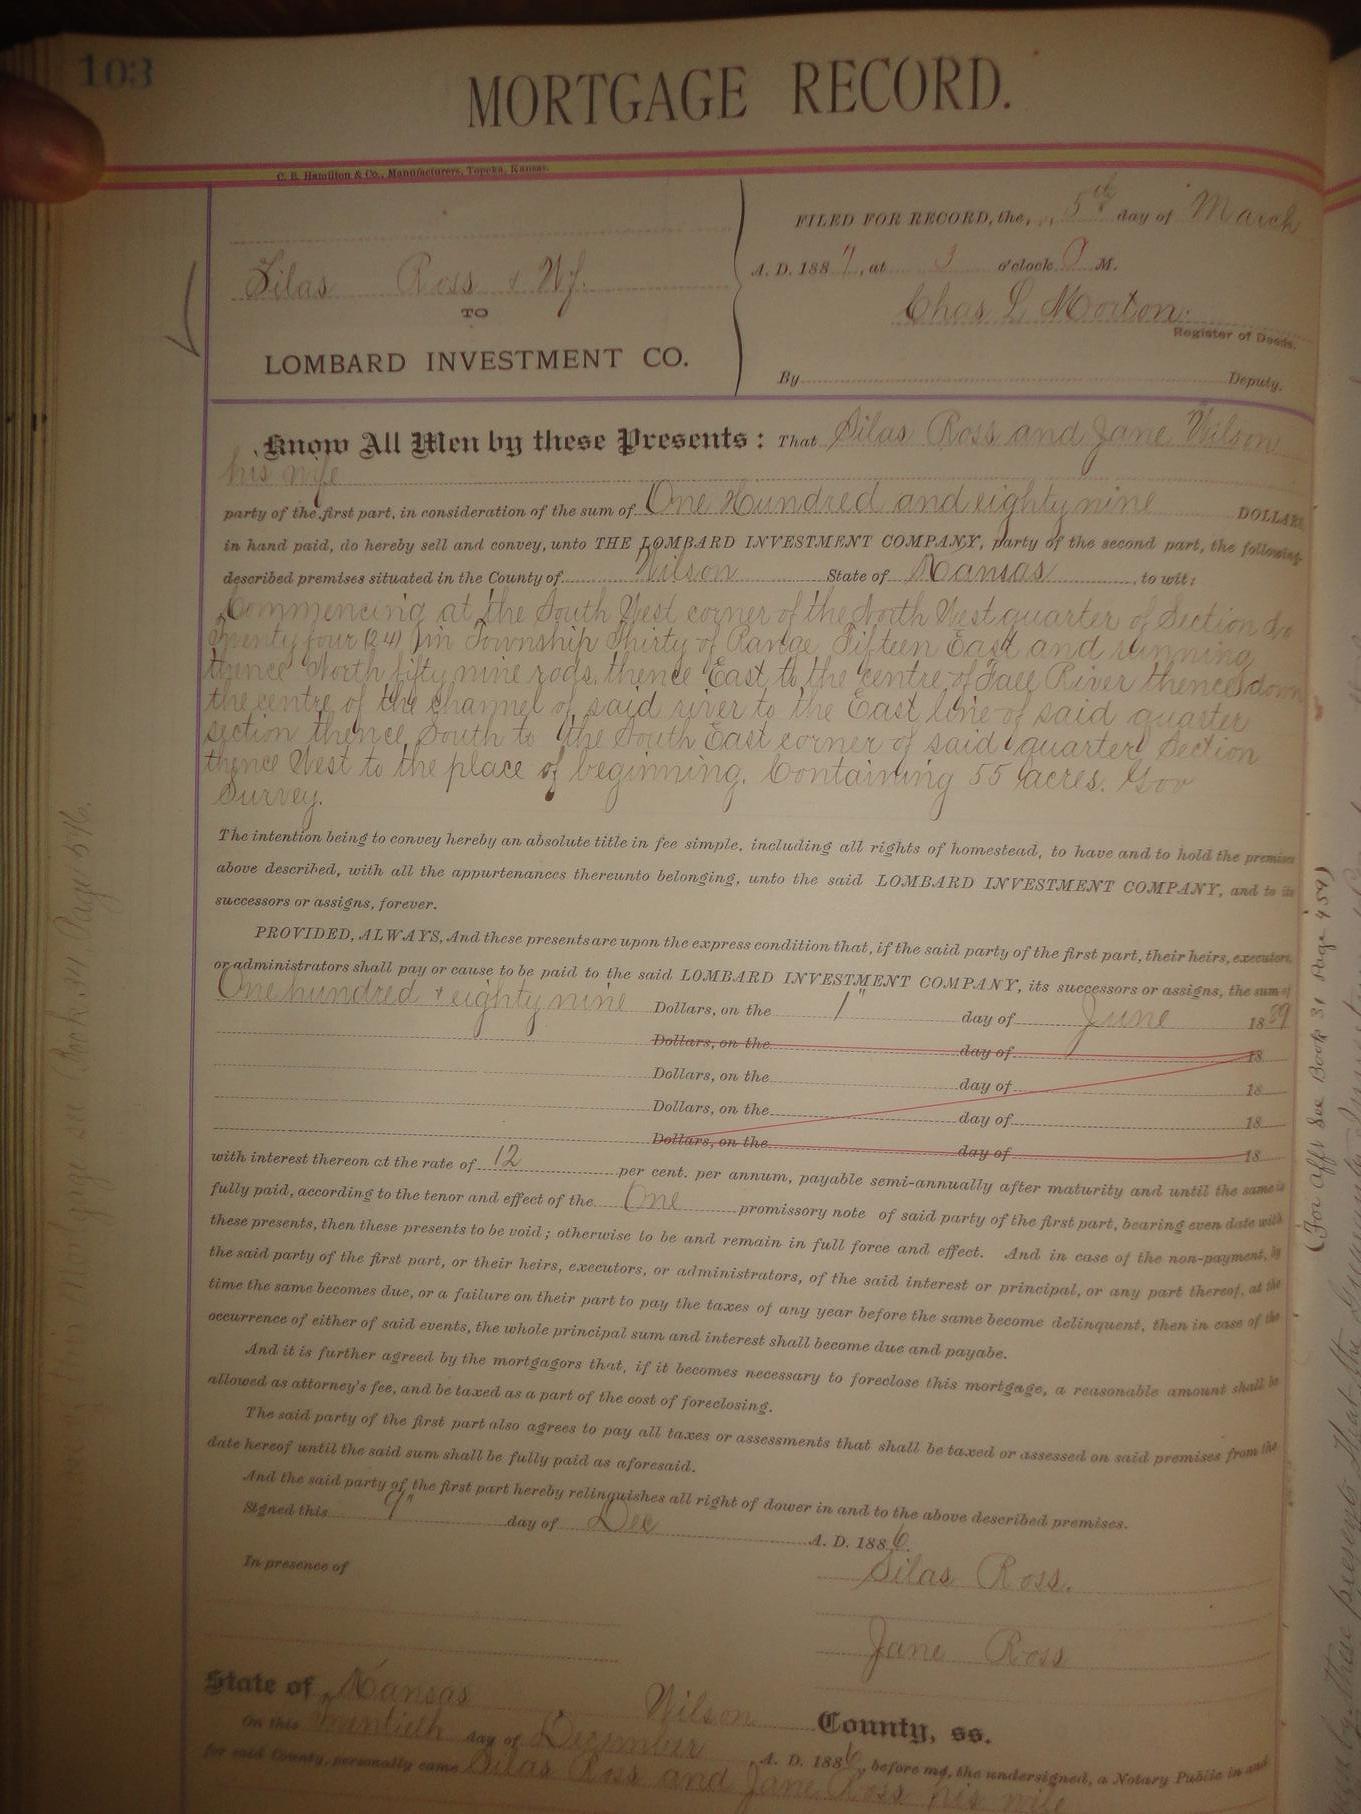 103
MORTGAGE RECORD.
C. B. Hamilton & Co., Manufacturers, Topeka, Kansas.
Silas Ross & Wf.
TO
LOMBARD INVESTMENT CO.
FILED FOR RECORD, the 5th day of March
A. D. 1887, at 3 o'clock P M.
Chas L Morton
Register of Deeds.
By Deputy.
Know All Men by these Presents: That Silas Ross and Jane Wilson
his wife
party of the first part, in consideration of the sum of One Hundred and eighty nine DOLLARS
in hand paid, do hereby sell and convey, unto THE LOMBARD INVESTMENT COMPANY, party of the second part, the following
described premises situated in the County of Wilson State of Kansas, to wit:
Commencing at the South West corner of the North West quarter of Section No
Twenty four (24) in Township Thirty of Range Fifteen East and running
thence North fifty nine rods, thence East to the centre of Fall River thence down
the centre of the channel of said river to the East line of said quarter
section thence South to the South East corner of said quarter Section
thence West to the place of beginning. Containing 55 acres. Gov
Survey.
The intention being to convey hereby an absolute title in fee simple, including all rights of homestead, to have and to hold the premises
above described, with all the appurtenances thereunto belonging, unto the said LOMBARD INVESTMENT COMPANY, and to its
successors or assigns, forever.
PROVIDED, ALWAYS, And these presents are upon the express condition that, if the said party of the first part, their heirs, executors,
or administrators shall pay or cause to be paid to the said LOMBARD INVESTMENT COMPANY, its successors or assigns, the sum of
One hundred & eighty nine Dollars, on the 1" day of June 1889
Dollars, on the day of 18
Dollars, on the day of 18
Dollars, on the day of 18
Dollars, on the day of 18
with interest thereon at the rate of 12 per cent. per annum, payable semi-annually after maturity and until the same is
fully paid, according to the tenor and effect of the One promissory note of said party of the first part, bearing even date with
these presents, then these presents to be void; otherwise to be and remain in full force and effect. And in case of the non-payment, by
the said party of the first part, or their heirs, executors, or administrators, of the said interest or principal, or any part thereof, at the
time the same becomes due, or a failure on their part to pay the taxes of any year before the same become delinquent, then in case of the
occurrence of either of said events, the whole principal sum and interest shall become due and payabe.
And it is further agreed by the mortgagors that, if it becomes necessary to foreclose this mortgage, a reasonable amount shall be
allowed as attorney's fee, and be taxed as a part of the cost of foreclosing.
The said party of the first part also agrees to pay all taxes or assessments that shall be taxed or assessed on said premises from the
date hereof until the said sum shall be fully paid as aforesaid.
And the said party of the first part hereby relinquishes all right of dower in and to the above described premises.
Signed this 9" day of Dec A. D. 1886.
In presence of
Silas Ross.
Jane Ross
State of Kansas Wilson County, ss.
On this Twentieth day of December A. D. 1886, before me, the undersigned, a Notary Public in and
for said County, personally came Silas Ross and Jane Ross his wife
Mortgage see Book 34 Page 596.
(For afft see Book 31 Page 454)